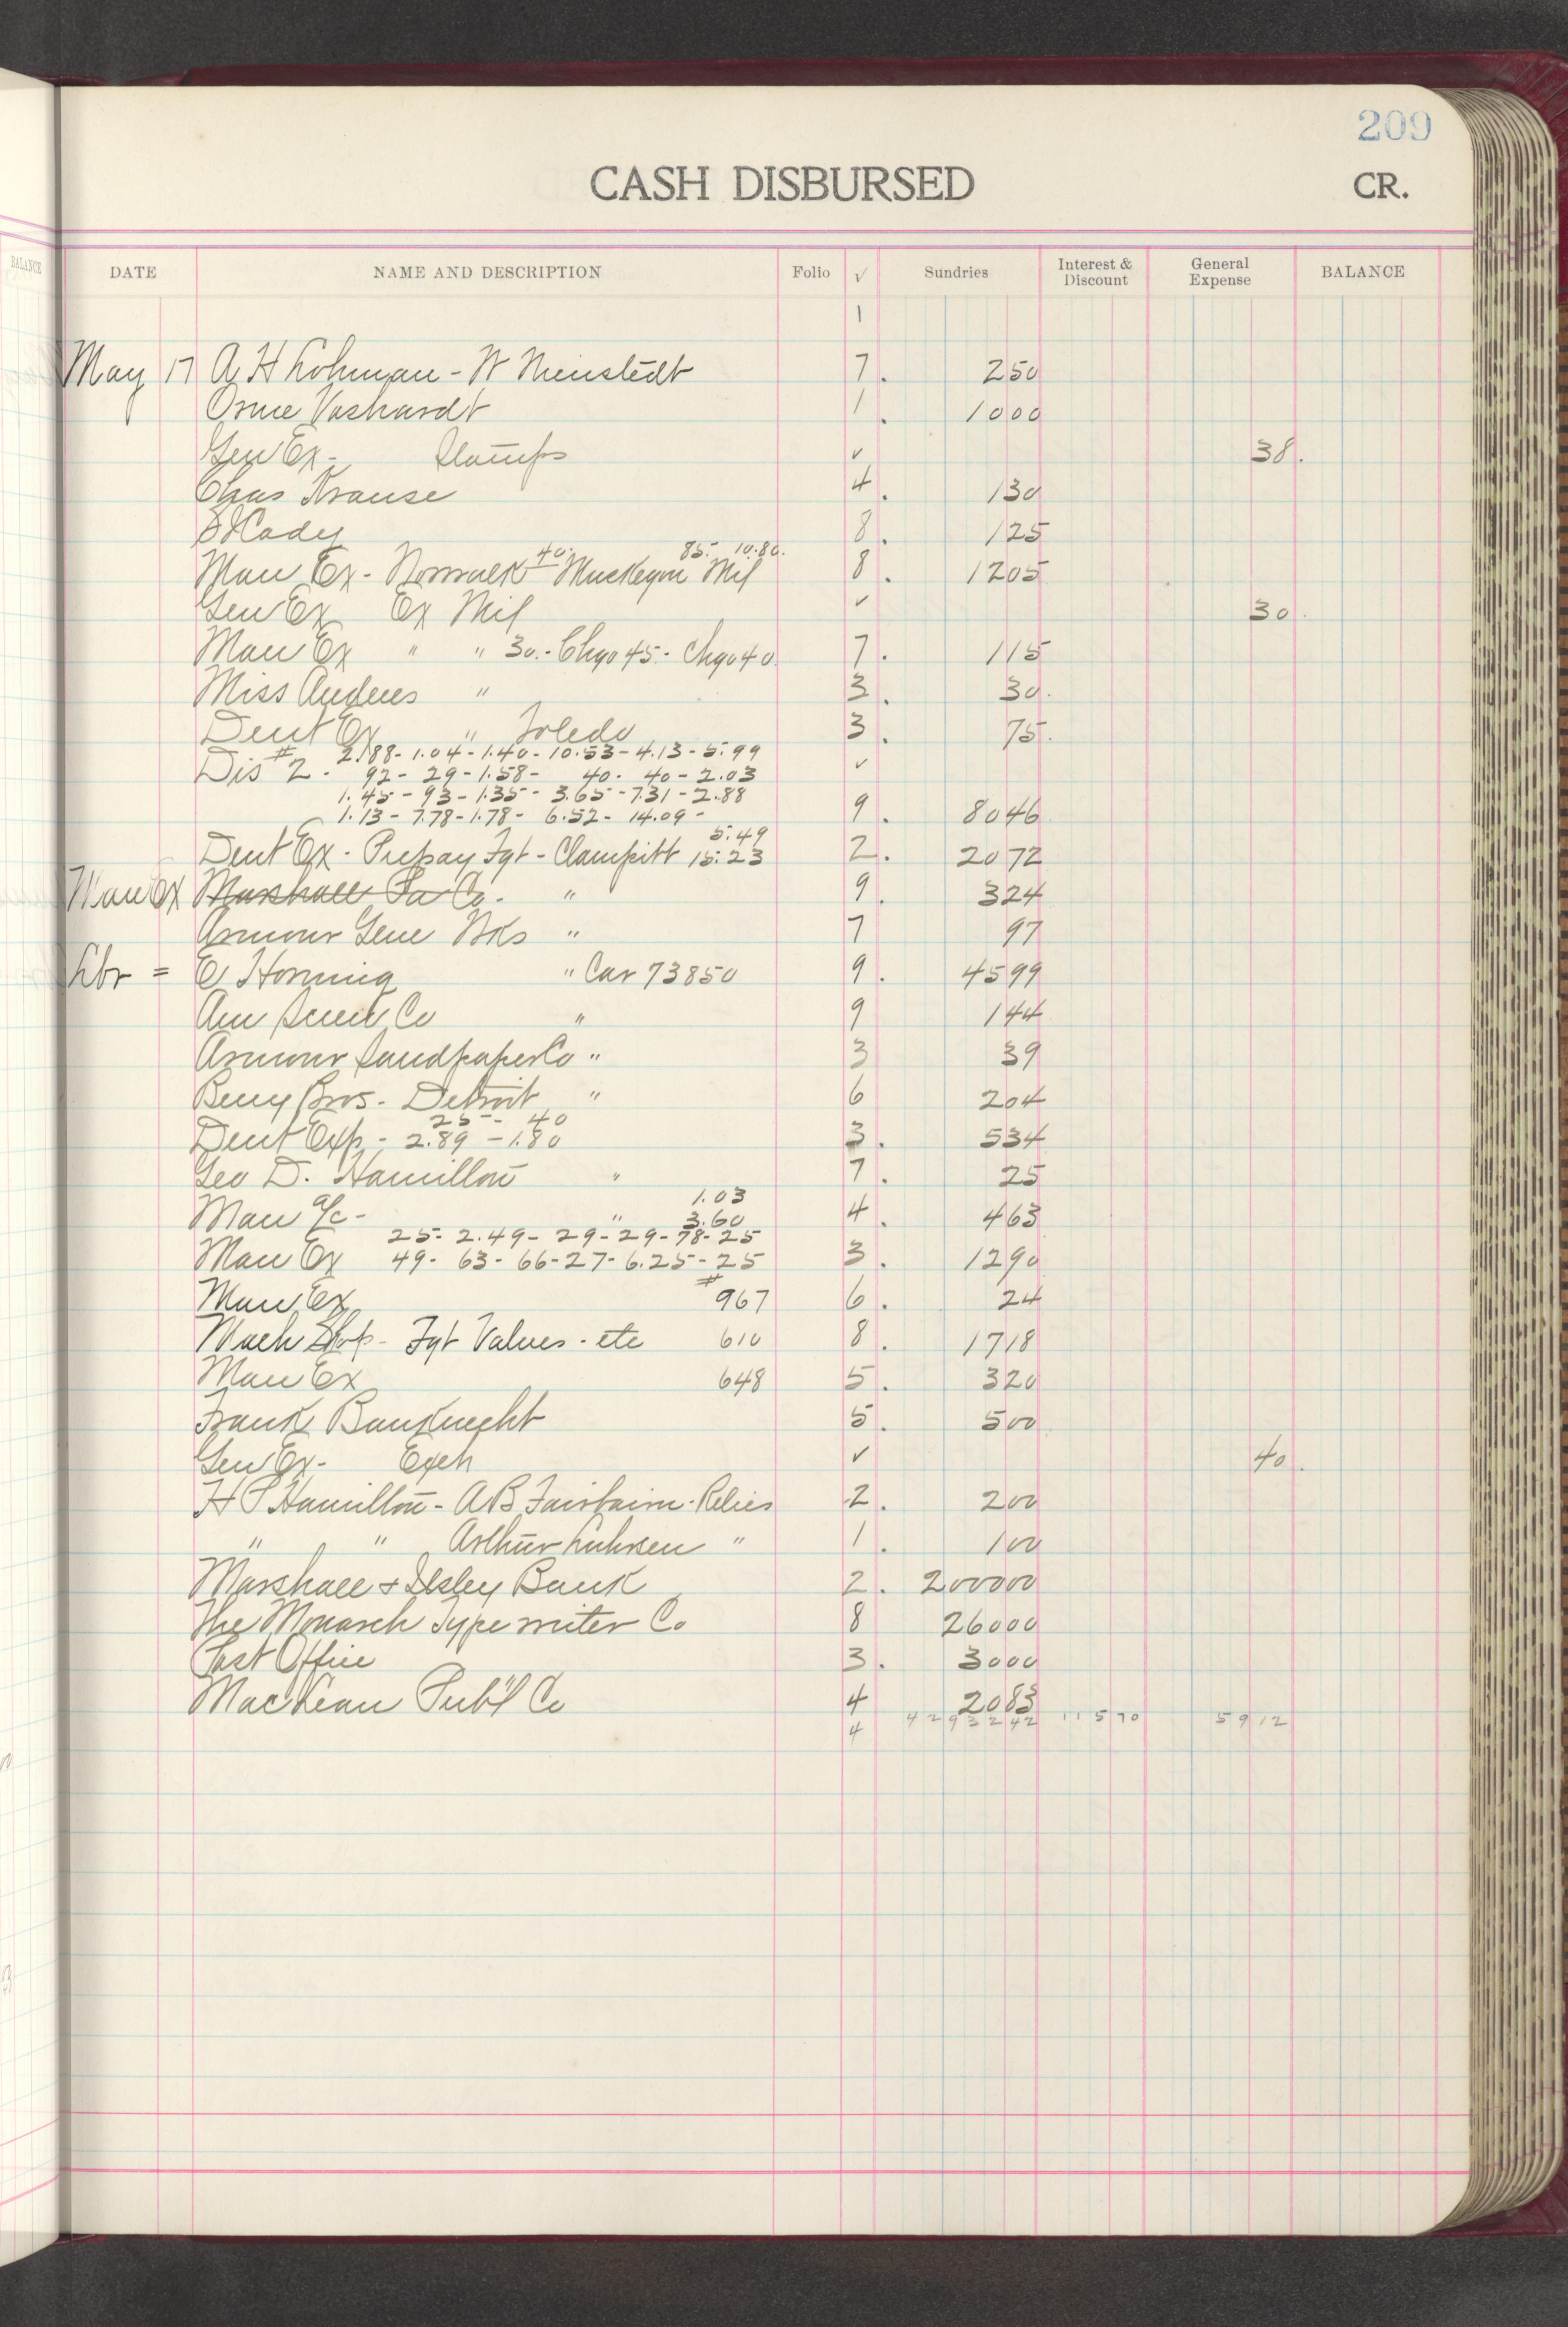 209
CASH DISBURSED CR.
BALANCE
DATE NAME AND DESCRIPTION Folio ✓ Sundries Interest & Discount General Expense BALANCE
1
May 17 A H Lohman - W Nienstedt 7. 250
Orme Vashardt 1. 1000
Gen Ex - Stamps ✓ 38.
Chas Krause 4. 130
Cady 8. 125
40. 85. 10.80.
Man Ex - Norwalk Muskegon Mil 8. 1205
Gen Ex Ex Mil ✓ 30.
Man Ex " " 30.- Chgo 45.- Chgo 40. 7. 115
Miss Anderes " 3. 30.
Dent Ex " Toledo 3. 75.
2.88- 1.04- 1.40- 10.53- 4.13- 5.99
Dis # 2 - 92- 29- 1.58- 40- 40- 2.03 ✓
1.45- 93- 1.35- 3.65- 7.31- 2.88
1.13- 7.78- 1.78- 6.52- 14.09- 9. 8046
5.49
Dent Ex - Prepay Fgt - Clampitt 15.23 2. 2072
Man Ex Marshall Co. " 9. 324
Armour Glue Wks " 7 97
Lbr = C Horning " Car 73850 9. 4599
Am Screw Co " 9 144
Armour Sandpaper Co " 3 39
Berry Bros - Detroit " 6 204
25- 40
Dent Exp - 2.89 - 1.80 3. 534
Geo D. Hamilton " 7. 25
1.03
Man a/c - " 3.60 4. 463
25- 2.49- 29- 29- 78- 25
Man Ex 49- 63- 66- 27- 6.25- 25 3. 1290
Man Ex #967 6. 24
Mach Shop - Fgt Valves - etc 610 8. 1718
Man Ex 648 5. 320
Frank Bauknecht 5. 500
Gen Ex - Exch ✓ 40.
H P Hamilton - A B Fairbairn - Relics 2. 200
" " Arthur Luhsen " 1. 100
Marshall & Ilsley Bank 2. 200000
The Monarch Typewriter Co 8 26000
Post Office 3. 3000
MacLean Pub'l Co 4 2083
4 4293242 11570 5912